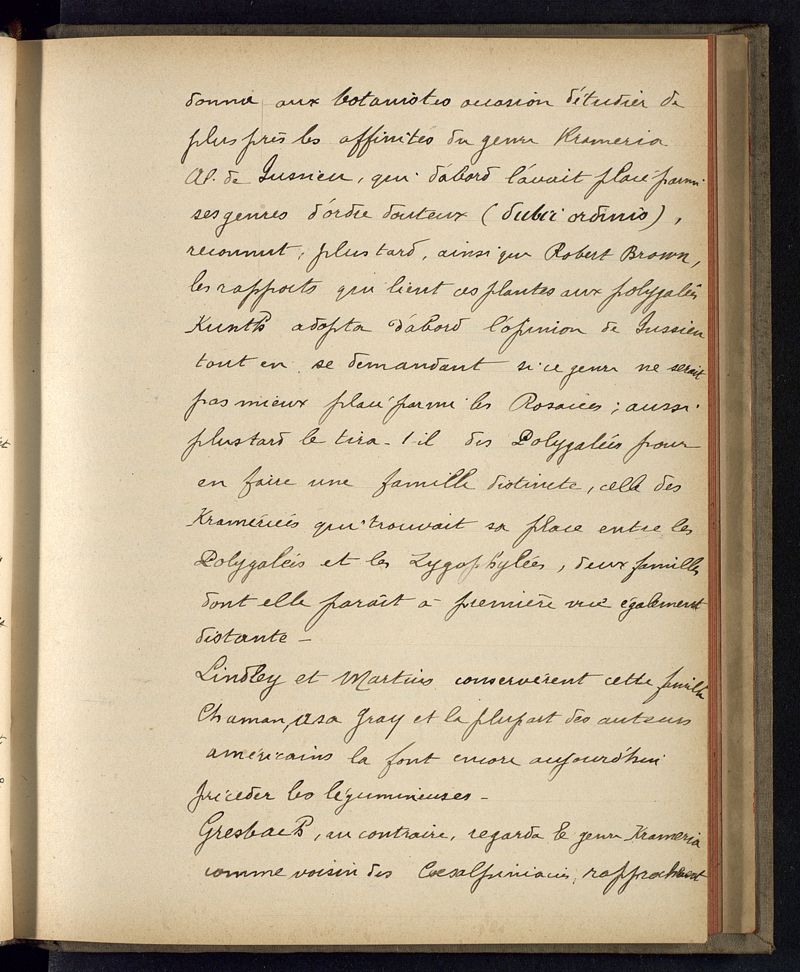 donne aux botanistes occasion d'étudier de
plus près les affinités du genre Krameria
Al. de Jussieu, qui d'abord l'avait placé parmi
ses genres d'ordre douteux (dubii ordinis),
reconnut, plus tard, ainsi que Robert Brown,
les rapports qui lient ces plantes aux polygalés
Kunth adopta d'abord l'opinion de Jussieu
tout en se demandant si ce genre ne serait
pas mieux placé parmi les Rosacées; aussi
plus tard le tira-t-il des Polygalées pour
en faire une famille distincte, celle des
Kramériées qui trouvait sa place entre les
Polygalées et les Zygophylées, deux familles
dont elle paraît à première vue également
distante –
Lindley et Martius conservèrent cette famille
Chaman, Asa Gray et la plupart des auteurs
américains la font encore aujourd'hui
précéder les légumineuses –
Gresbach, au contraire, regarda le genre Krameria
comme voisin des Coesalpiniacées, rapprochant